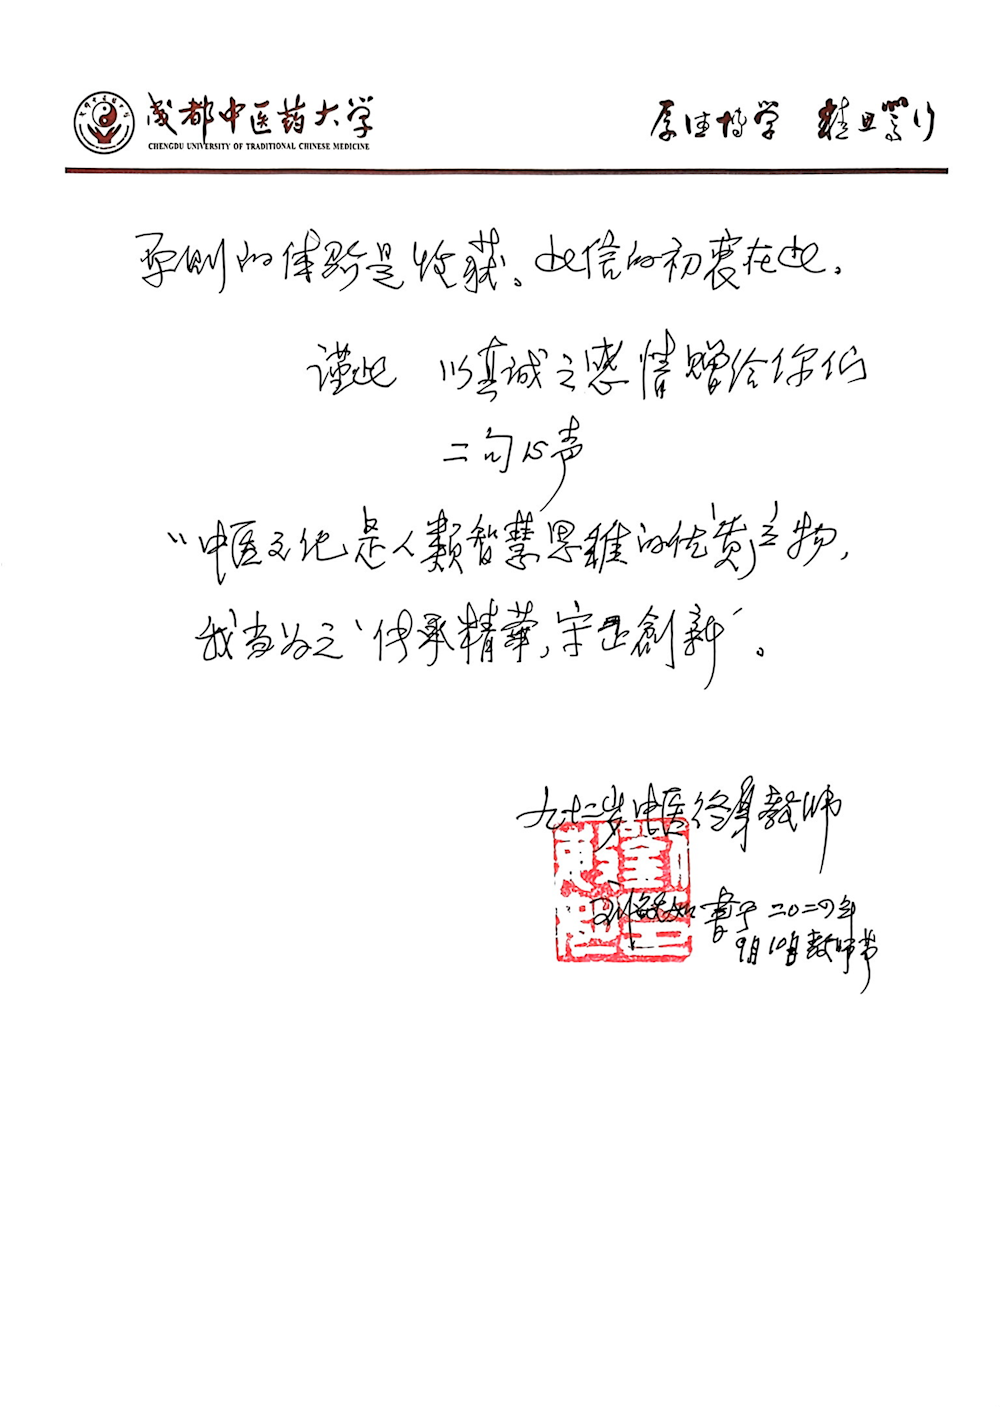 成都中医药大学
CHENGDU UNIVERSITY OF TRADITIONAL CHINESE MEDICINE
厚德博学 精思笃行
原则的体验是收获。此信的初衷在此。
谨此 以真诚之感情赠给你们
二句心声
“中医文化是人類智慧思维的优质产物,
我当为之“传承精華,守正創新”。
九十二岁中医终身教师
刘敏如書于二〇二四年
9月10日教师节